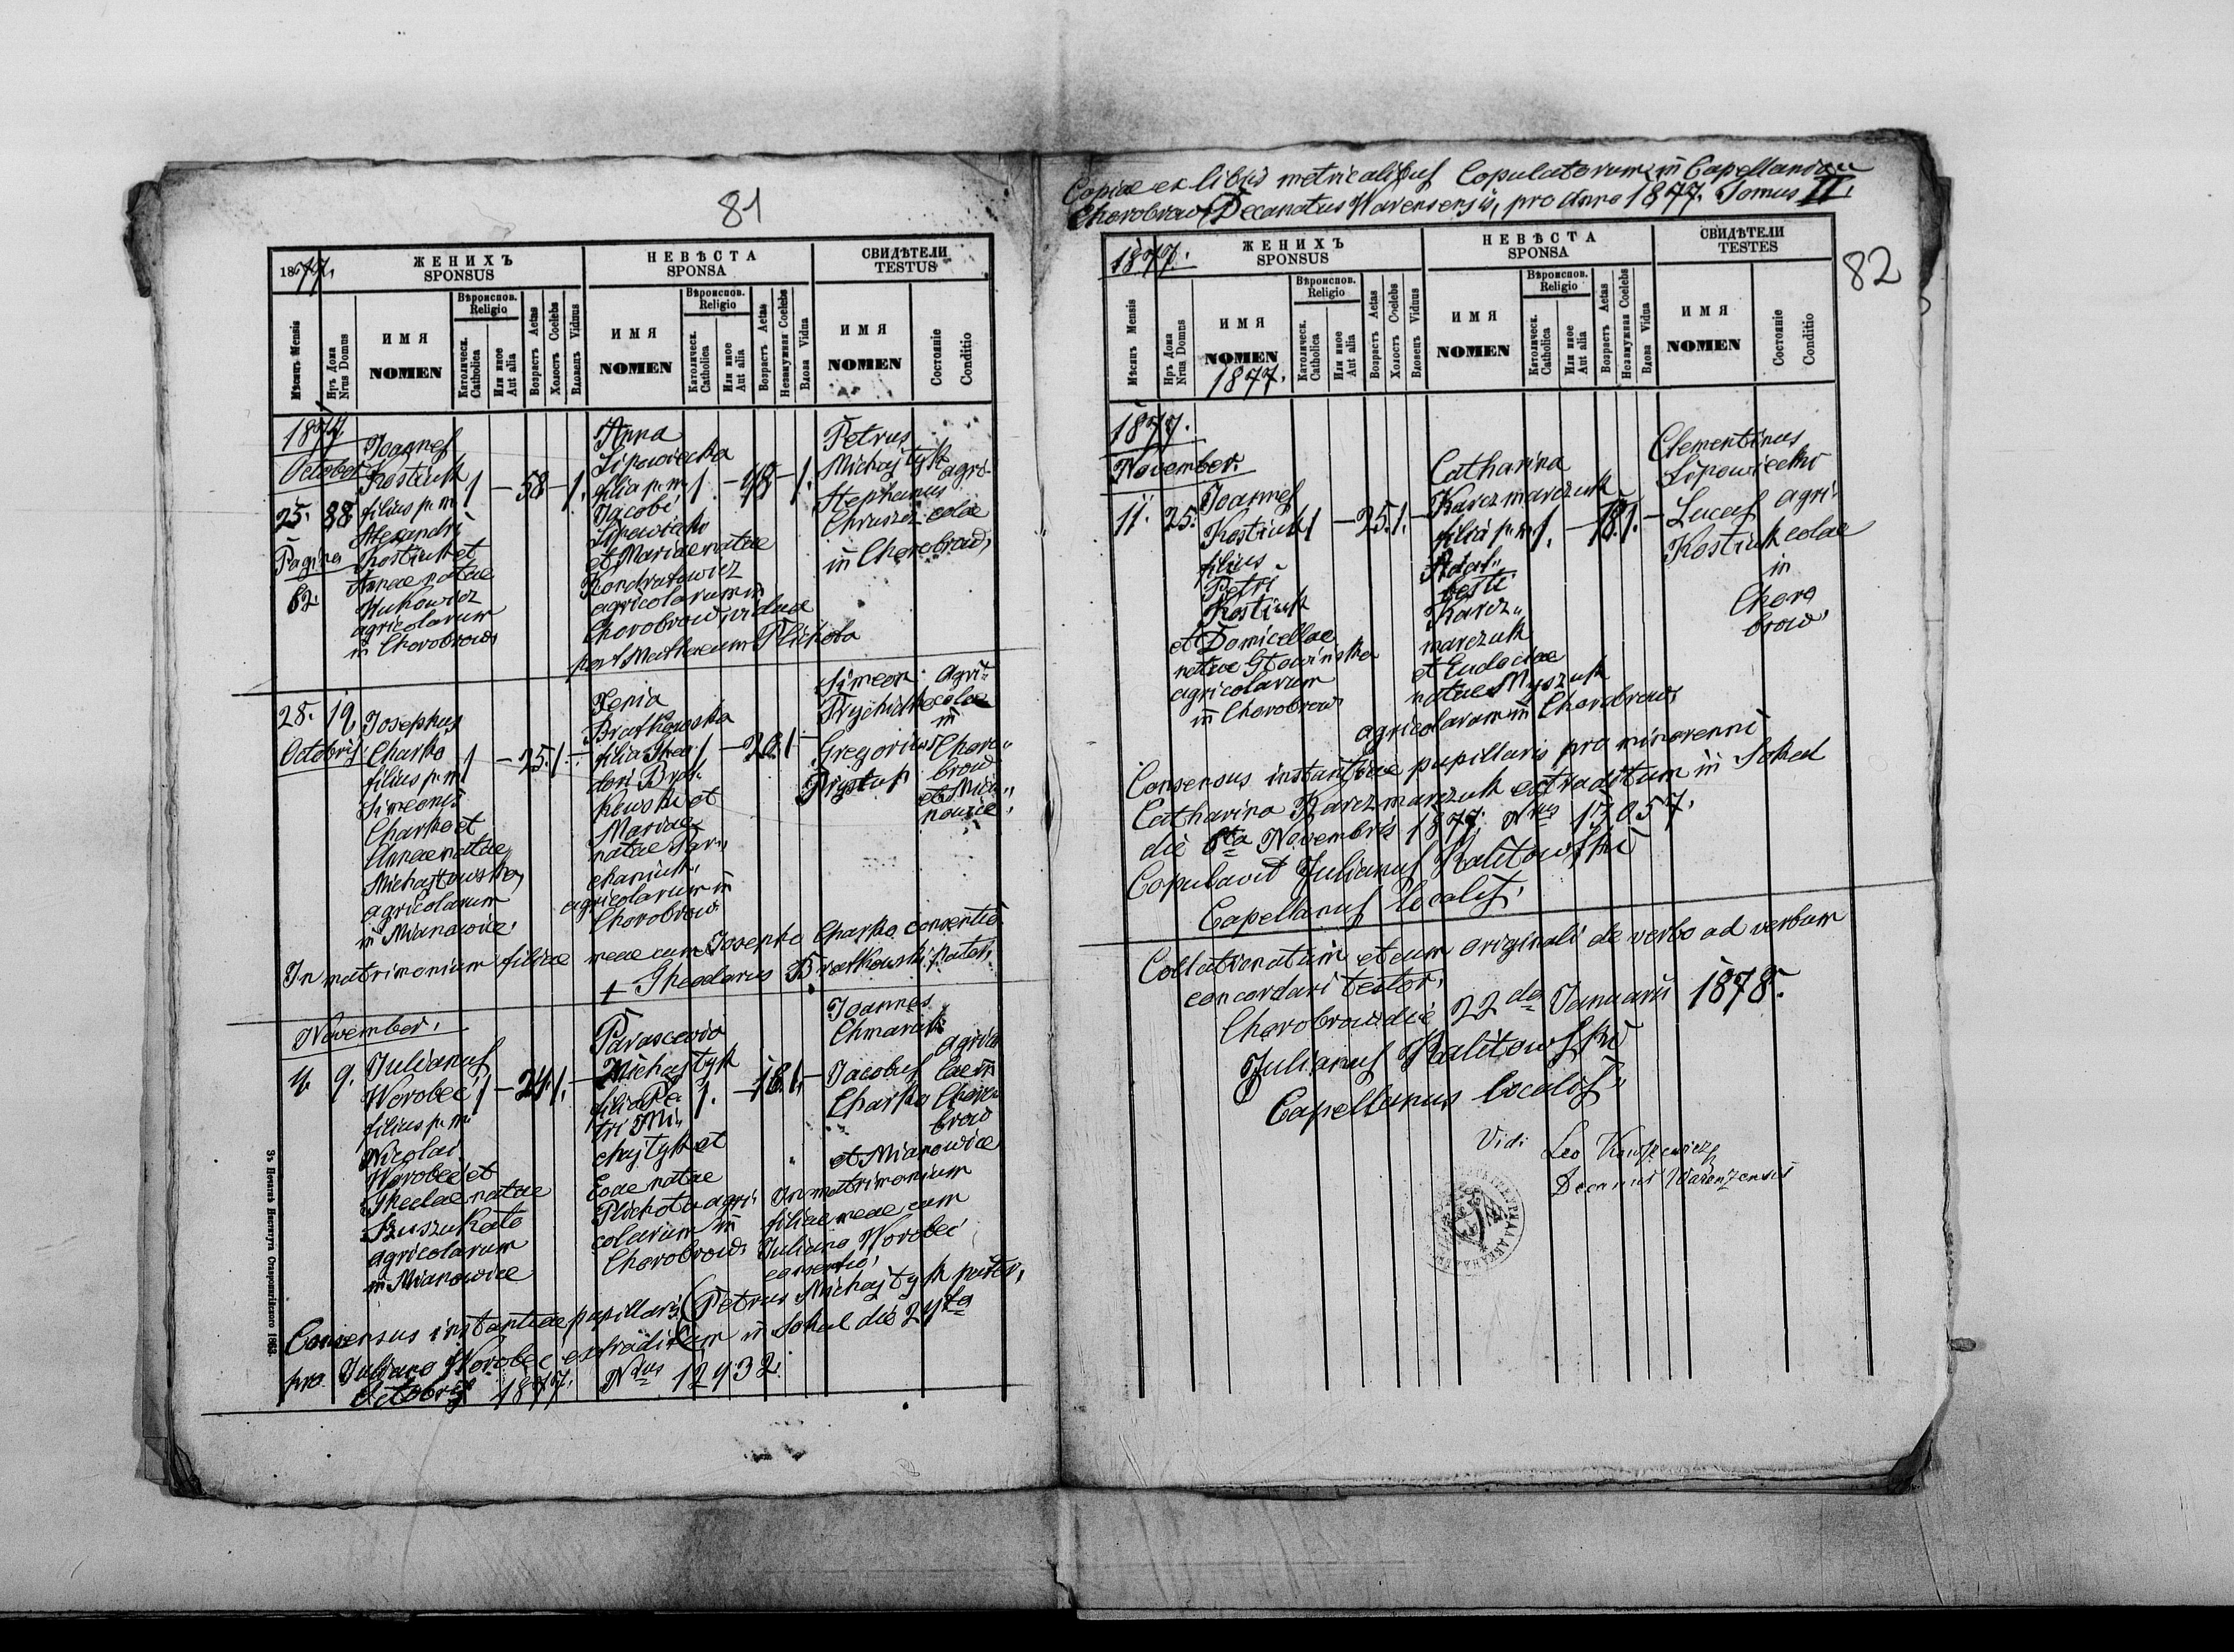 81
1877.
ЖЕНИХЪ
SPONSUS
НЕВѢСТА
SPONSA
СВИДѢТЕЛИ
TESTUS
Мѣсяцъ Mensis
Нръ Дома
Nrus Domus
ИМЯ
NOMEN
Вѣроиспов.
Religio
Католическ.
Catholica
Или иное
Aut alia
Возрастъ Aetas
Холостъ Coelebs
Вдовецъ Viduus
ИМЯ
NOMEN
Вѣроиспов.
Religio
Католическ.
Catholica
Или иное
Aut alia
Возрастъ Aetas
Незамужная Coelebs
Вдова Vidua
ИМЯ
NOMEN
Состояніе
Conditio
1877.
October
25. 88
Pagina
62.
Joannes
Kostiuk
filius p. m.
Alexandri
Kostiuk et
Annae natae
Wukowicz
agricolarum
in Chorobrow,
1 – 58 – 1.
Anna
Lipowiecka
filia p. m.
Jacobi
Lipowiecki
et Mariae natae
Kondratowicz
agricolarum in
Chorobrow, vidua
post Mathaeum Plichota
1. – 48 – 1.
Petrus
Michajtyk
Stephanus
Chruszcz
agri-
colae
in Chorobrow,
28. 19
Octobris
Josephus
Charko
filius p. m.
Simeonis
Charko et
Annae natae
Michajtowska,
agricolarum
in Mianowice,
1 – 25. 1. –
Xenia
Bratkowska
filia Theo-
dori Brat-
kowski et
Mariae
natae
chaniuk,
agricolarum in
Chorobrow
1 – 20. 1. –
Simeon
Prychidko
Gregorius
Prystup
Agri-
colae
in
Choro-
brow
et Mia-
nowice,
In matrimonium filiae meae cum Josepho Charko consentio
+ Theodorus Bratkowski pater,
November,
4. 9.
Julianus
Worobec
filius p. m.
Nicolai
Worobec et
Theclae natae
agricolarum
in Mianowice
1 – 24. 1. –
Parascevia
Michajtyk
filia Pe-
tri Mi-
chajtyk et
Evae natae
Plichota agri-
colarum in
Chorobrow,
1. – 18. 1. –
Joannes
Chmaruk
Jacobus
Charko
agrico-
lae in
Choro-
brow
et Mianowice
In matrimonium
filiae meae cum
Juliano Worobec
consentio,
Petrus Michajtyk pater,
Consensus instantiae pupillaris
pro Juliano Worobec extraditum in Sokal die 24ta
Octobris 1877. Nrus 12432.
Зъ Печатнѣ Инстітута Ставропигійского 1863.
Copiae ex libris metricalibus Copulatorum in Capellania
Chorobrow Decanatus Warensensis, pro Anno 1877. Tomus II.
82
1877.
ЖЕНИХЪ
SPONSUS
НЕВѢСТА
SPONSA
СВИДѢТЕЛИ
TESTES
Мѣсяцъ Mensis
Нръ Дома
Nrus Domus
ИМЯ
NOMEN
1877.
Вѣроиспов.
Religio
Католическ.
Catholica
Или иное
Aut alia
Возрастъ Aetas
Холостъ Coelebs
Вдовецъ Viduus
ИМЯ
NOMEN
Вѣроиспов.
Religio
Католическ.
Catholica
Или иное
Aut alia
Возрастъ Aetas
Незамужная Coelebs
Вдова Vidua
ИМЯ
NOMEN
Состояніе
Conditio
1877.
November.
11. 25.
Joannes
Kostiuk
filius
Petri
Kostiuk
et Domicellae
natae Głowińska
agricolarum
in Chorobrow
1 – 25. 1. –
Catharina
Karczmarczuk
filia p. m.
Adal-
berti
Karcz-
marczuk
et Eudociae
natae Myszuk
agricolarum in Chorobrow,
1. – 18. 1. –
Clementinus
Lipowiecki
Lucas
Kostiuk
agri-
colae
in
Choro
brow,
Consensus instantiae pupillaris pro minorenni
Catharina Karczmarczuk extraditum in Sokal
die 6ta Novembris 1877. Nrus 13057.
Copulavit Julianus Kalitowski
Capellanus localis,
Collationatum et cum originali de verbo ad verbum
concordari testor,
Chorobrow die 22da Januarii 1878.
Julianus Kalitowski
Capellanus localis,
Vidi
Leo
Decanus